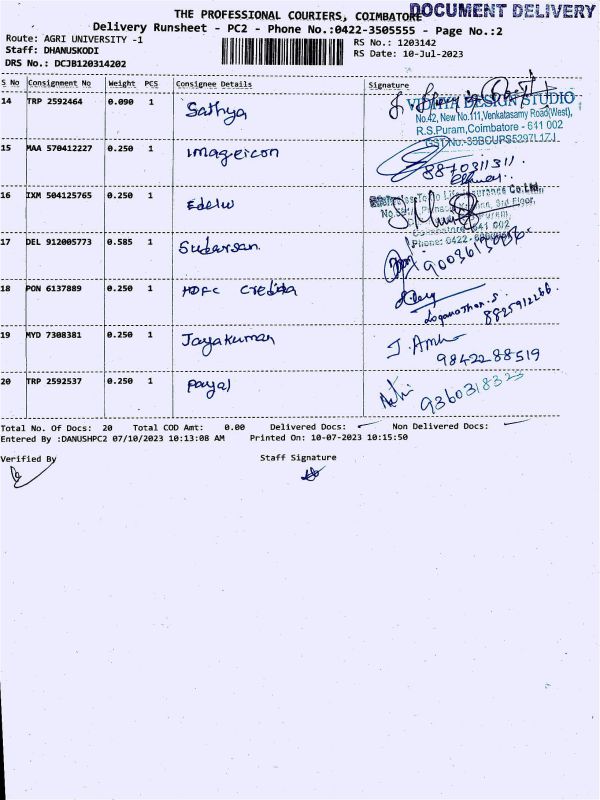 THE PROFESSIONAL COURIERS, COIMBATORE
DOCUMENT DELIVERY
Delivery Runsheet - PC2 - Phone No.:0422-3505555 - Page No.:2
Route: AGRI UNIVERSITY -1
RS No.: 1203142
Staff: DHANUSKODI
RS Date: 10-Jul-2023
DRS No.: DCJB120314202
S No Consignment No Weight PCS Consignee Details Signature
14 TRP 2592464 0.090 1 Sathya
VIDHYA DESIGN STUDIO
No.42, New No.111, Venkatasamy Road(West),
R.S.Puram, Coimbatore - 641 002
GST No.-33BCUPS5297L1ZJ
15 MAA 570412227 0.250 1 imagericon
8870311311.
16 IXM 504125765 0.250 1 Edelw
Life Insurance Co.Ltd.
3rd Floor,
Coimbatore - 641 002
Phone: 0422-
17 DEL 912005773 0.585 1 Sudarsan.
18 PON 6137889 0.250 1 HDFC Credila
Loganathan.S.
8825912266.
19 MYD 7308381 0.250 1 Jayakumar
9842288519
20 TRP 2592537 0.250 1 Payal
9360318323
Total No. Of Docs: 20 Total COD Amt: 0.00 Delivered Docs: Non Delivered Docs:
Entered By :DANUSHPC2 07/10/2023 10:13:08 AM Printed On: 10-07-2023 10:15:50
Verified By Staff Signature